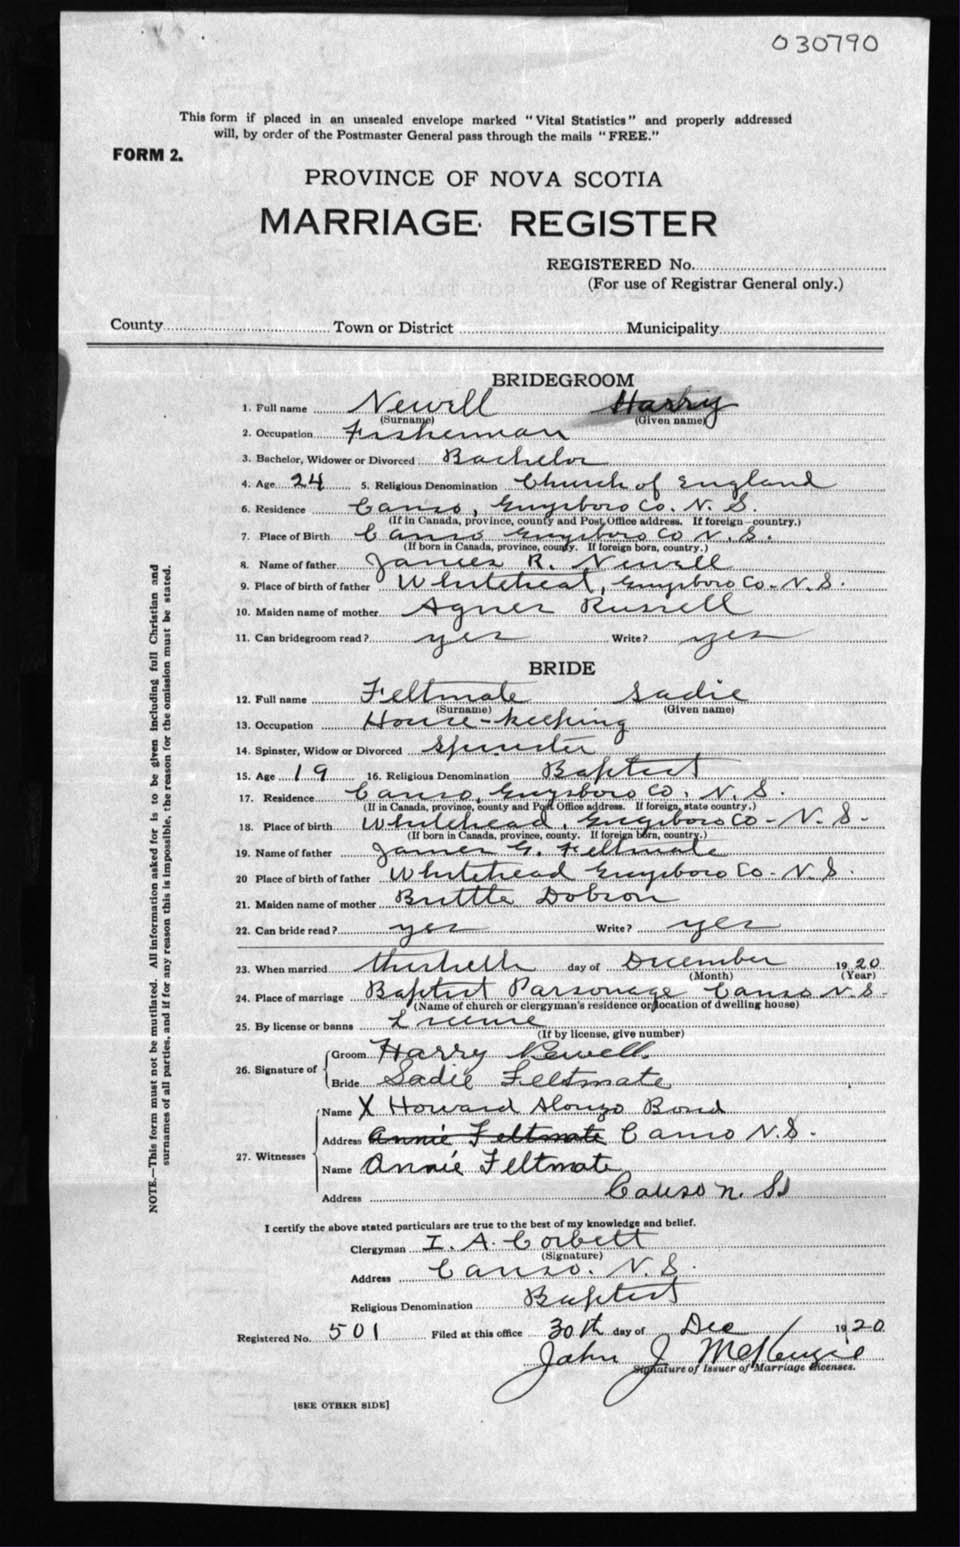 030790
This form if placed in an unsealed envelope marked "Vital Statistics" and properly addressed
will, by order of the Postmaster General pass through the mails "FREE."
FORM 2.
PROVINCE OF NOVA SCOTIA
MARRIAGE REGISTER
REGISTERED No.
(For use of Registrar General only.)
County Town or District Municipality
BRIDEGROOM
1. Full name Newell Harry
(Surname) (Given name)
2. Occupation Fisherman
3. Bachelor, Widower or Divorced Bachelor
4. Age 24 5. Religious Denomination Church of England
6. Residence Canso, Guysboro Co. N. S.
(If in Canada, province, county and Post Office address. If foreign country.)
7. Place of Birth Canso Guysboro Co N. S.
(If born in Canada, province, county. If foreign born, country.)
8. Name of father James R. Newell
9. Place of birth of father Whitehead, Guysboro Co. N. S.
10. Maiden name of mother Agnes Russell
11. Can bridegroom read? yes Write? yes
BRIDE
12. Full name Feltmate Sadie
(Surname) (Given name)
13. Occupation House-keeping
14. Spinster, Widow or Divorced Spinster
15. Age 19 16. Religious Denomination Baptist
17. Residence Canso, Guysboro Co. N. S.
(If in Canada, province, county and Post Office address. If foreign, state country.)
18. Place of birth Whitehead, Guysboro Co - N. S -
(If born in Canada, province, county. If foreign born, country.)
19. Name of father James G. Feltmate
20 Place of birth of father Whitehead Guysboro Co - N. S.
21. Maiden name of mother Dobson
22. Can bride read? yes Write? yes
23. When married day of December 1920
(Month) (Year)
24. Place of marriage Baptist Parsonage Canso N. S -
(Name of church or clergyman's residence or location of dwelling house)
25. By license or banns License
(If by license, give number)
26. Signature of
Groom Harry Newell
Bride Sadie Feltmate
27. Witnesses
Name X Howard Alonzo Bond
Address Annie Feltmate Canso N. S.
Name Annie Feltmate
Address Canso N. S
I certify the above stated particulars are true to the best of my knowledge and belief.
Clergyman I. A. Corbett
(Signature)
Address Canso. N. S.
Religious Denomination Baptist
Registered No. 501 Filed at this office 30th day of Dec 1920
John J McKenzie
Signature of Issuer of Marriage Licenses.
[SEE OTHER SIDE]
NOTE.—This form must not be mutilated. All information asked for is to be given including full Christian and
surnames of all parties, and if for any reason this is impossible, the reason for the omission must be stated.